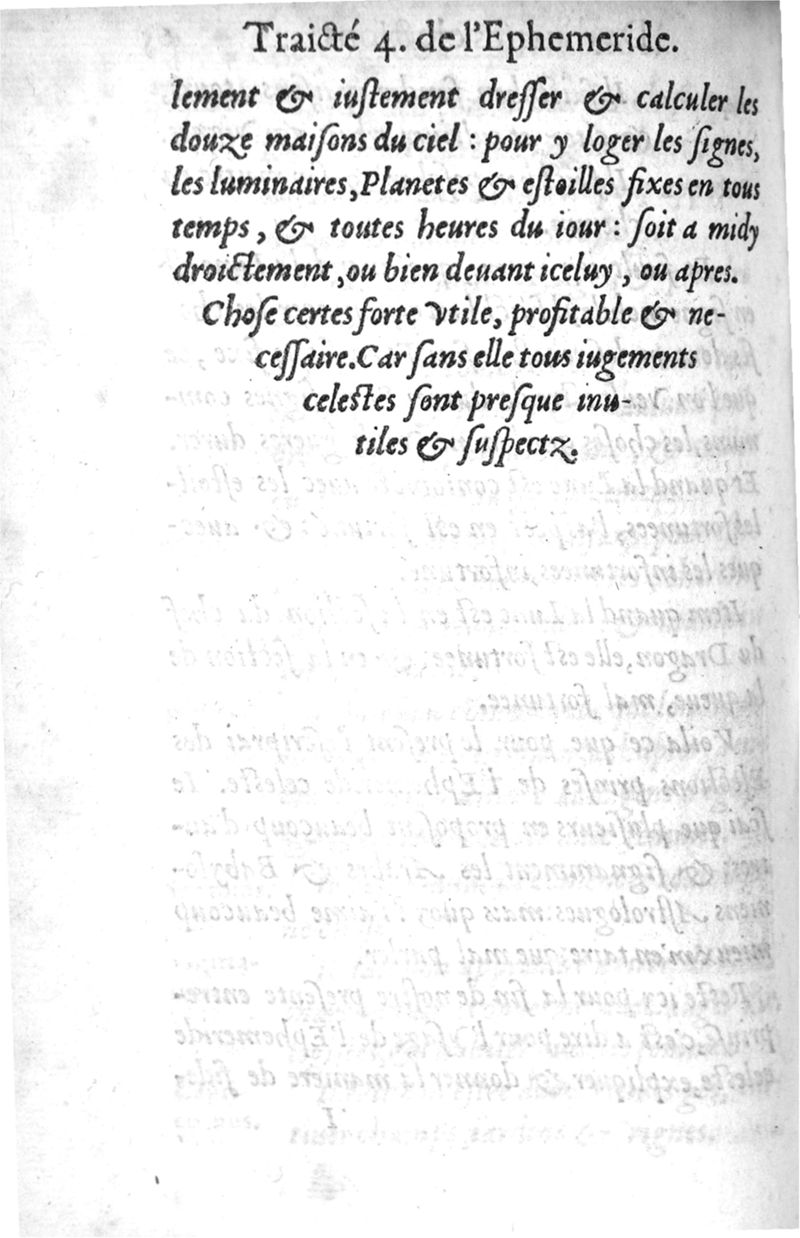 Traicté 4. de l'Ephemeride.
lement & iuſtement dreſſer & calculer les
douze maiſons du ciel : pour y loger les ſignes,
les luminaires, Planetes & eſtoilles fixes en tous
temps, & toutes heures du iour : ſoit a midy
droictement, ou bien deuant iceluy, ou apres.
Choſe certes forte vtile, profitable & ne-
ceſſaire. Car ſans elle tous iugements
celeſtes ſont preſque inu-
tiles & ſuſpectz.